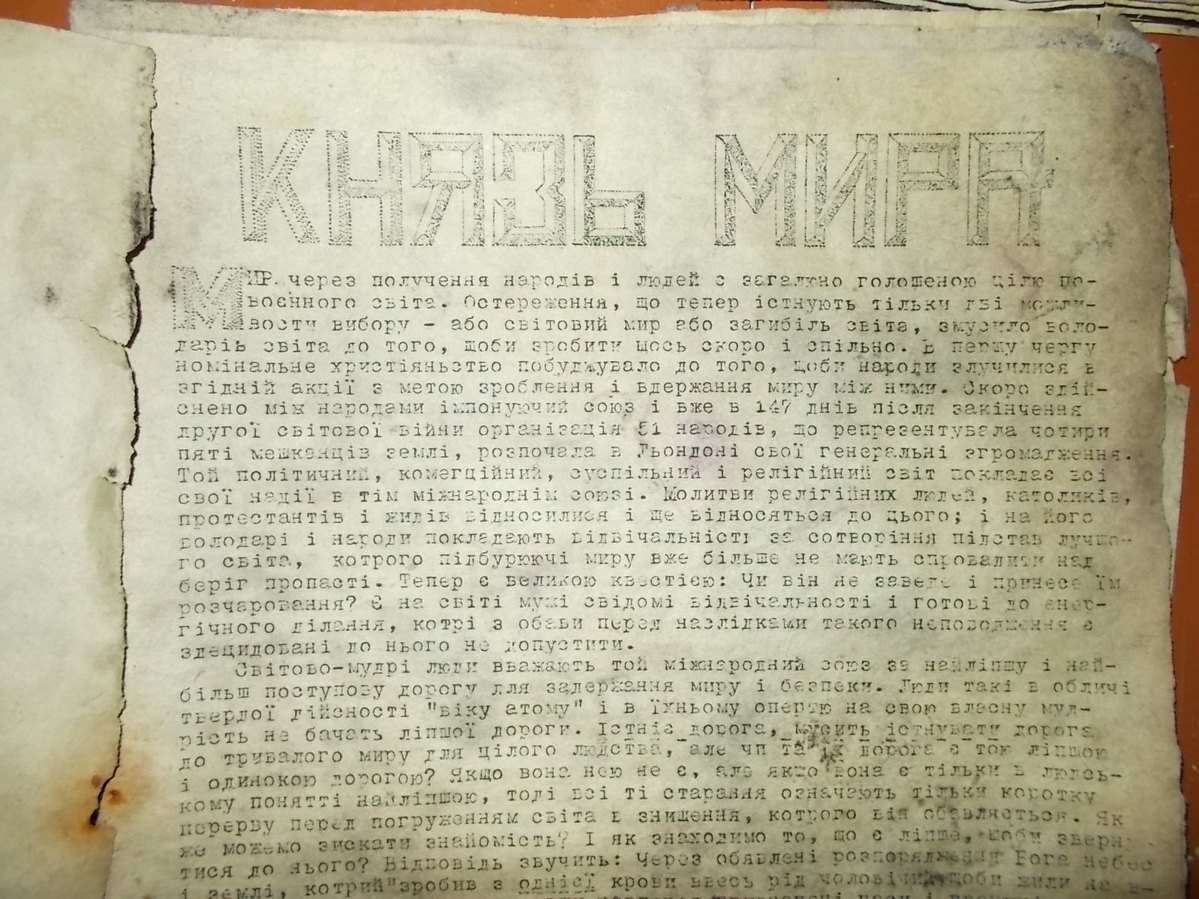 КНЯЗЬ МИРА
МИР через получення народів і людей є загально голошеною цілю по-
воєнного світа. Остереження, що тепер істнують тільки дві можли-
вости вибору - або світовий мир або загибіль світа, змусило воло-
дарів світа до того, щоби зробити щось скоро і спільно. В першу чергу
номінальне християньство побуджувало до того, щоби народи злучилися в
згідній акції з метою зроблення і вдержання миру між ними. Скоро здій-
снено між народами імпонуючий союз і вже в 147 днів після закінчення
другої світової війни організація 51 народів, що репрезентувала чотири
пяті мешканців землі, розпочала в Льондоні свої генеральні згромадження.
Той політичний, комерційний, суспільний і релігійний світ покладає всі
свої надії в тім міжнароднім союзі. Молитви релігійних людей, католиків,
протестантів і жидів відносилися і ще відносяться до цього; і на його
володарі і народи покладають відвічальність за сотворіння підстав лучшо-
го світа, котрого підбурюючі миру вже більше не мають спровадити над
беріг пропасті. Тепер є великою квестією: Чи він не заведе і принесе їм
розчаровання? Є на світі мужі свідомі відвічальности і готові до енер-
гічного ділання, котрі з обави перед наслідками такого неповодження є
здецидовані до нього не допустити.
Світово-мудрі люди вважають той міжнародний союз за найліпшу і най-
більш поступову дорогу для задержання миру і безпеки. Люди такі в обличі
твердої дійсности "віку атому" і в їхньому опертю на свою власну муд-
рість не бачать ліпшої дороги. Істніє дорога, мусить істнувати дорога
до тривалого миру для цілого людства, але чи та їх дорога є тою ліпшою
і одинокою дорогою? Якщо вона нею не є, але якщо вона є тільки в людсь-
кому понятті найліпшою, тоді всі ті старання означають тільки коротку
перерву перед погруженням світа в знищення, котрого він обавляється. Як
же можемо зискати знайомість? І як знаходимо то, що є ліпше, щоби зверну
тися до нього? Відповідь звучить: Через обявлені розпорядження Бога небес
і землі, котрий "зробив з однієї крови ввесь рід чоловічий, щоби жили